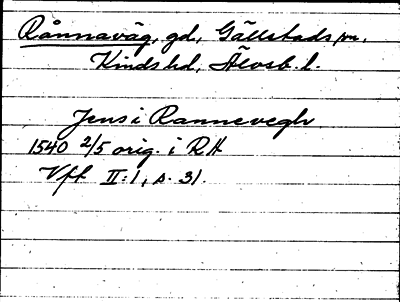 Rånnaväg, gd, Gällstads sn,
Kinds hd, Älvsb. l.
Jens i Rannevegh
1540 2/5 orig. i RA
Vff II:1, s. 31.